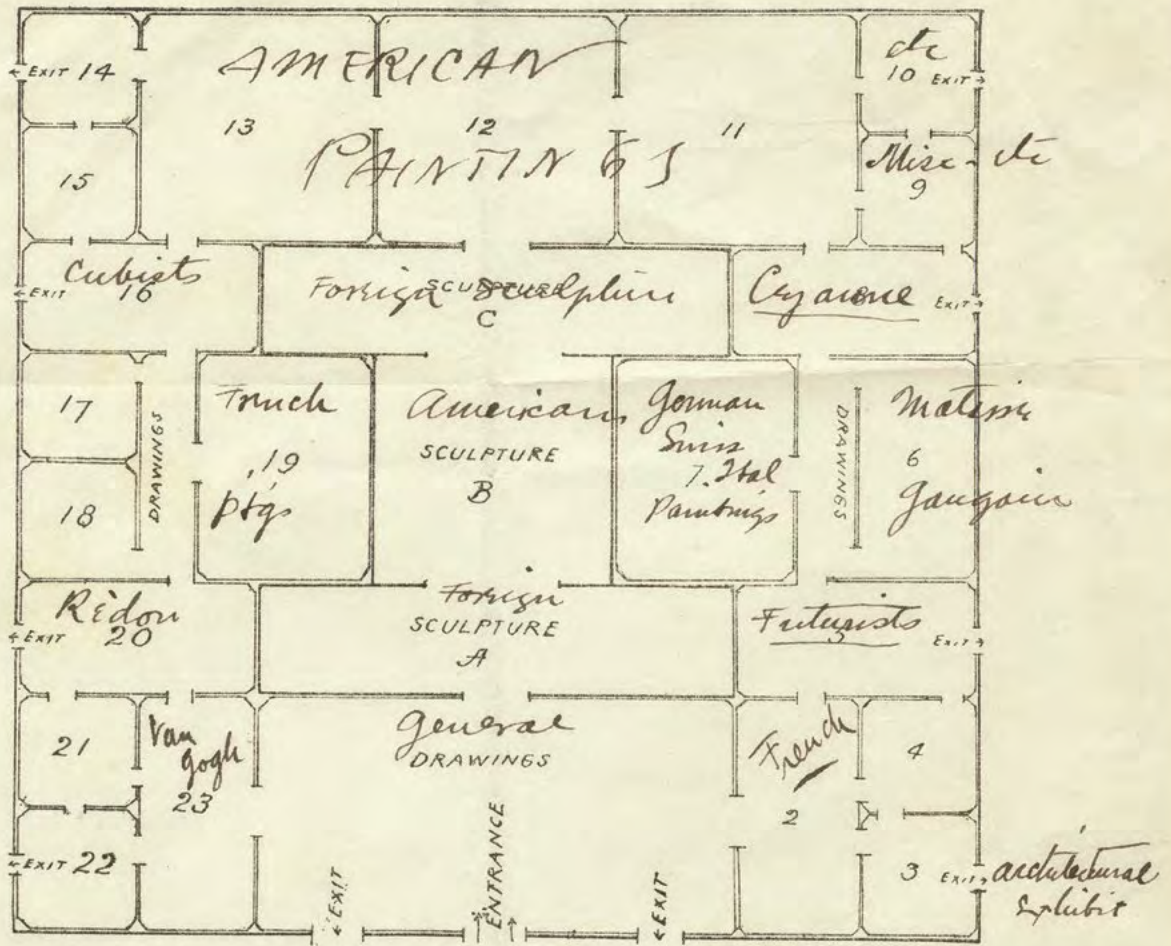 ← EXIT 14
AMERICAN
etc
10 EXIT →
13
12
11
PAINTINGS
15
Misc - etc
9
Cubists
← EXIT
16
Foreign Sculpture
SCULPTURE
C
Cezanne
EXIT →
17
DRAWINGS
French
19
ptgs
American
SCULPTURE
B
German
Swiss
7. Ital
Paintings
DRAWINGS
Matisse
6
Gauguin
18
Redon
← EXIT 20
Foreign
SCULPTURE
A
Futurists
EXIT →
21
Van
Gogh
23
General
DRAWINGS
French
2
4
← EXIT 22
← EXIT
ENTRANCE
← EXIT
3 EXIT → architectural
Exhibit